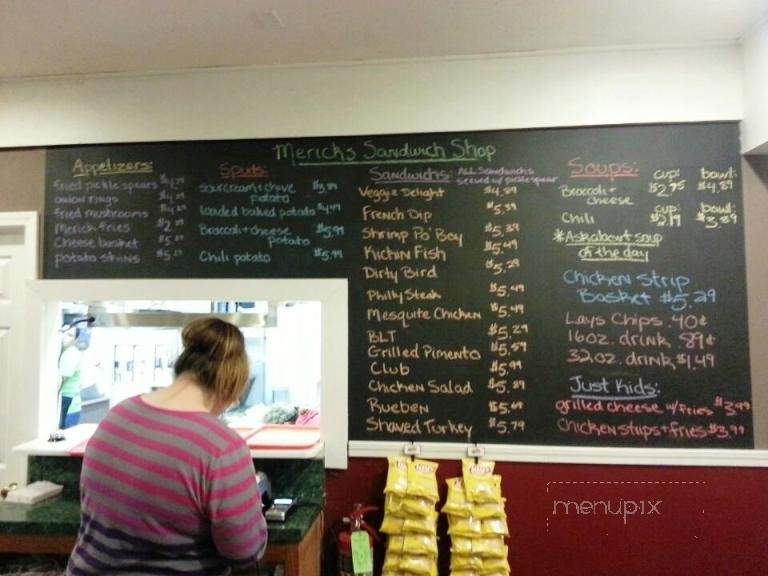 Merick's Sandwich Shop
Appetizers:
fried pickle spears
onion rings
fried mushrooms
Merick fries
Cheese basket
potato skins
Spuds:
sourcream + chive
potato
loaded baked potato $4.99
Broccoli + cheese
potato $5.99
Chili potato $5.99
Sandwichs: ALL Sandwichs
served w/ pickle spear
Veggie Delight $4.89
French Dip $5.99
Shrimp Po' Boy $5.89
Kichin Fish $5.49
Dirty Bird $5.29
Philly Steak $5.49
Mesquite Chicken $5.49
BLT $5.29
Grilled Pimento $5.59
Club $5.99
Chicken Salad $5.89
Rueben $5.69
Shaved Turkey $5.79
Soups: cup: bowl:
Broccoli + $2.75 $4.89
cheese
cup: bowl:
Chili $2.19 $3.89
*Ask about soup
of the day
Chicken Strip
Basket $5.29
Lays Chips .40¢
16oz. drink .89¢
32oz. drink $1.49
Just Kids:
grilled cheese w/ fries $3.99
Chicken strips + fries $3.99
Lay's
menupix